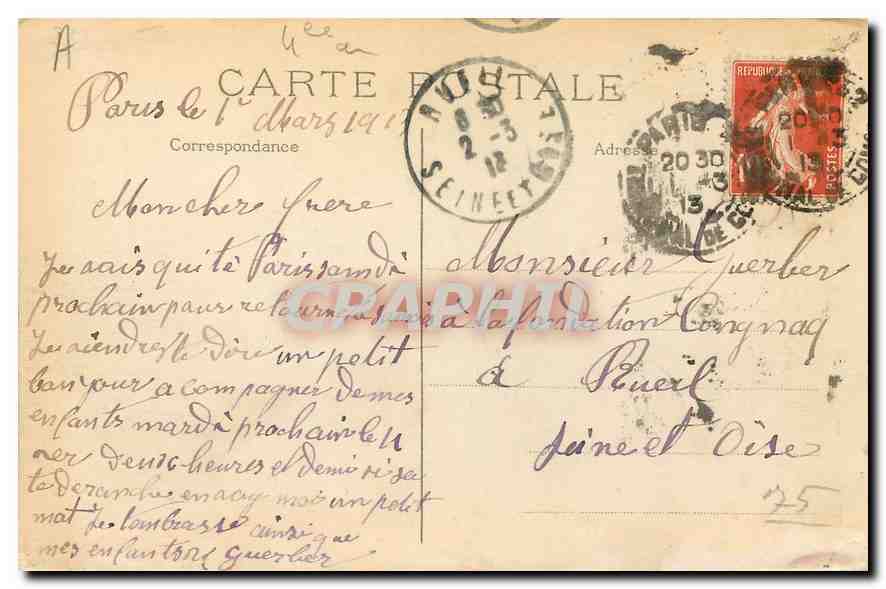 A
4ee
CARTE POSTALE
Paris le 1r Mars 191
Correspondance
Adresse
RUEIL
8 30
2 - 3
13
SEINE ET OISE
PARIS
20 30
3
13
REPUBLIQUE
POSTES
20 30
13
Mon cher frere
Je vais quité Paris samdi
prochain pour retourné
Je viendrés te dire un petit
bonjour acompagner de mes
enfants mardi prochain le 4
ver deux heures et demi si sa
te deranche envoy moi un petit
mot Je tembrasse ainsi que
mes enfants Guerber
Monsieur Guerber
à la fondation Congnaq
à Rueil
Seine et Oise
75
CPAPHIL